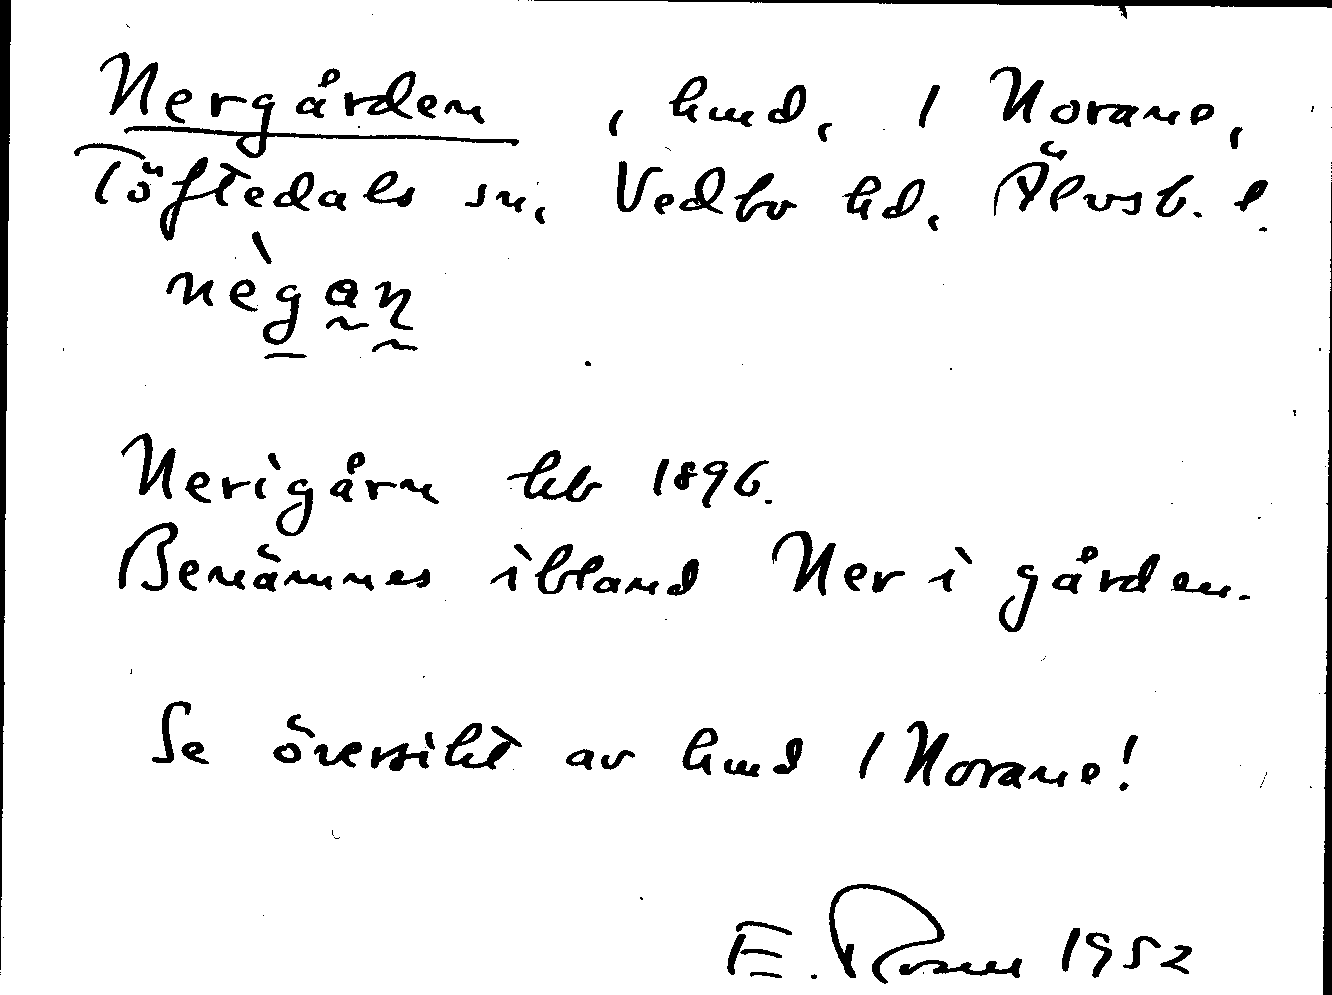 Nergården, hmd, 1 Norane,
Töftedals sn, Vedbo hd, Älvsb. l.
nègan
Nerigårn hb 1896.
Benämnes ibland Ner i gården.
Se översikt av hmd 1 Norane!
E. Rosen 1952